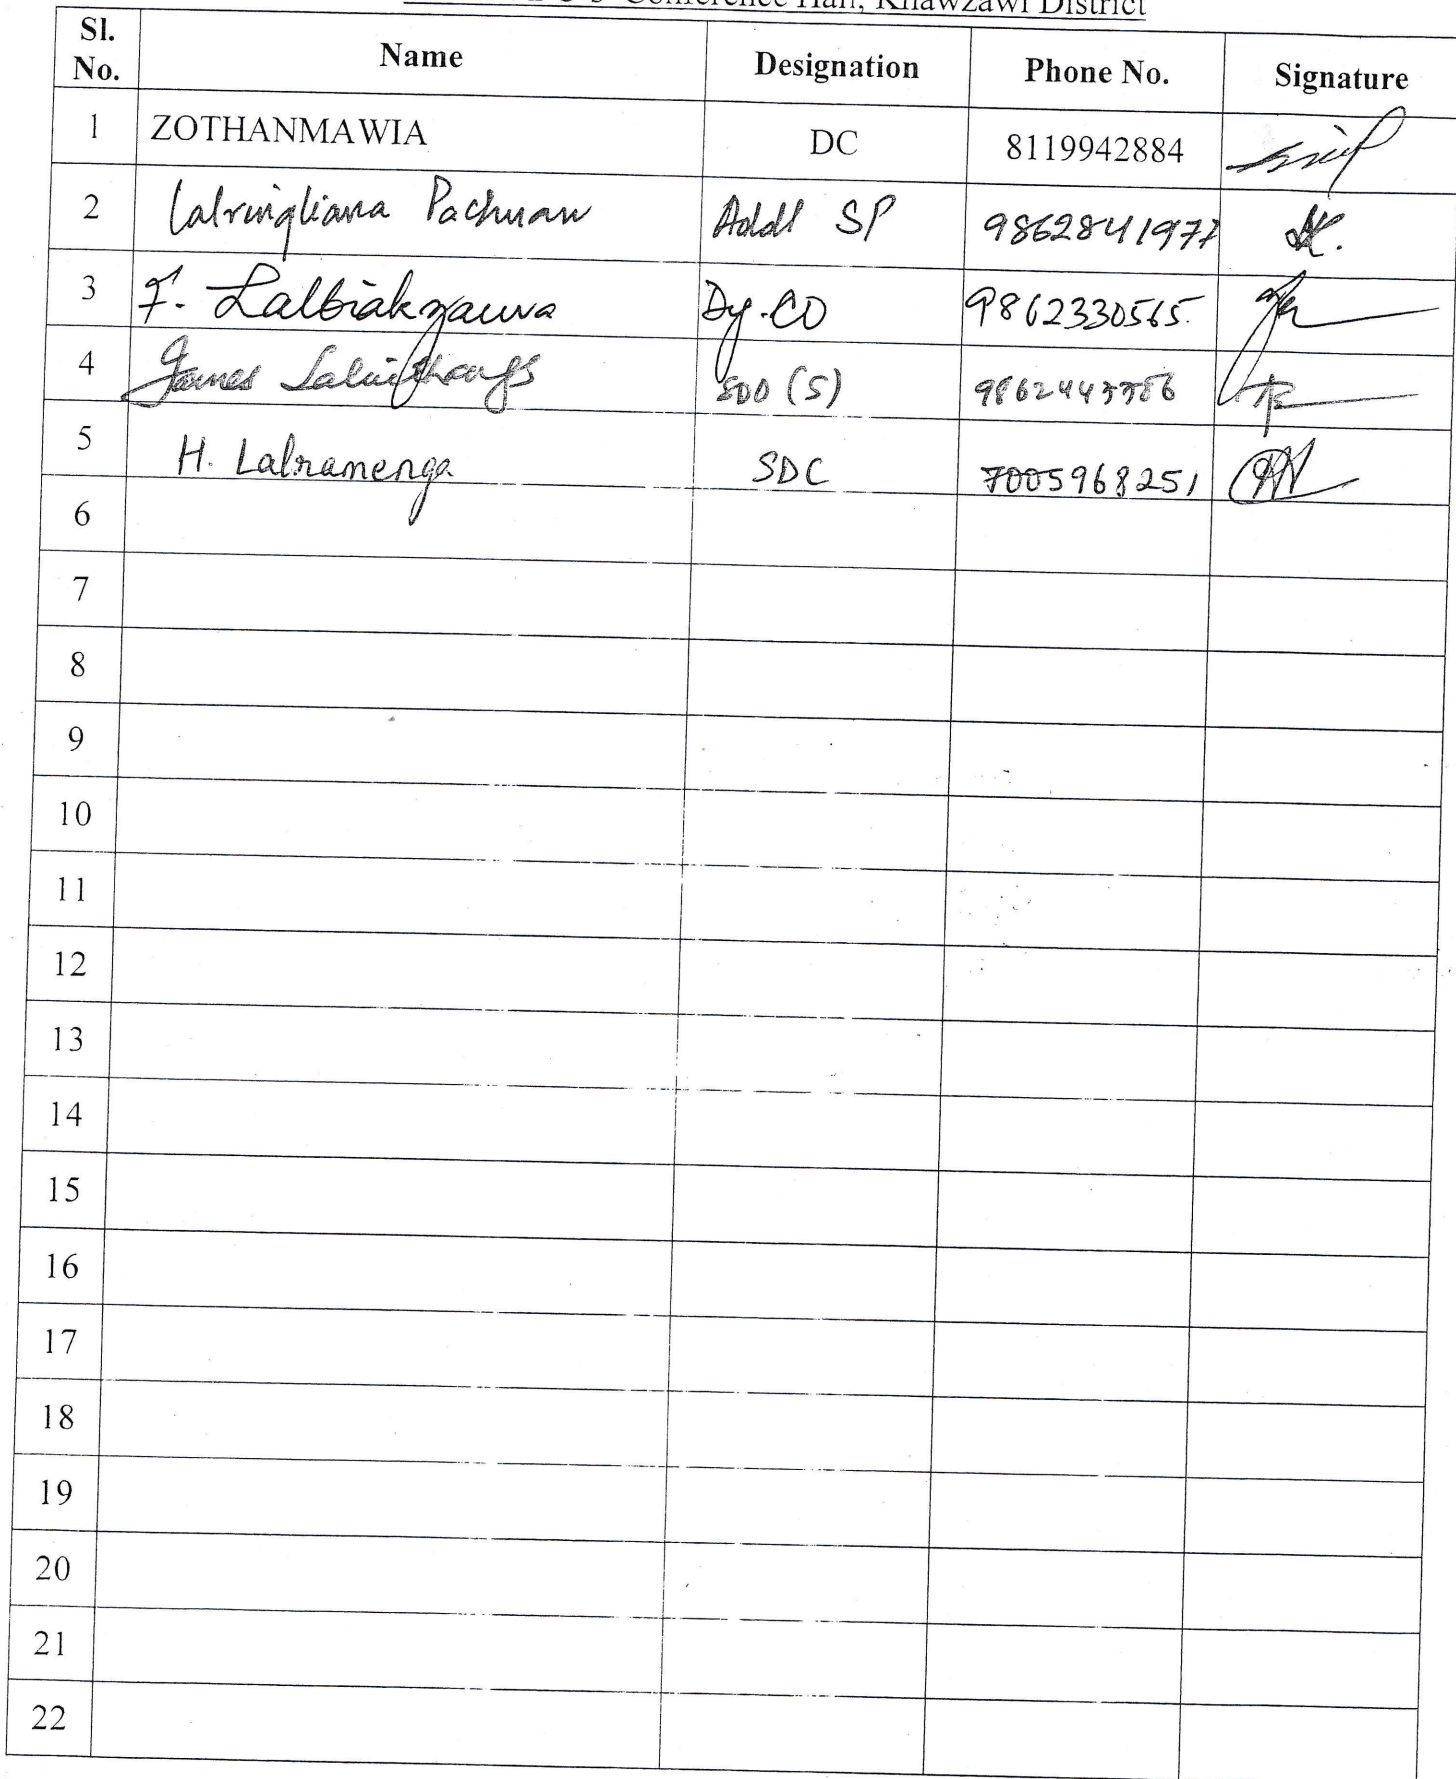 Conference Hall, Khawzawl District
Sl. No. Name Designation Phone No. Signature
1 ZOTHANMAWIA DC 8119942884
2 Lalringliana Pachuau Addl SP 9862841977
3 F. Lalbiakzauva Dy.CO 9862330565.
4 James SDO (S)
5 H. Lalramenga SDC 7005968251
6
7
8
9
10
11
12
13
14
15
16
17
18
19
20
21
22